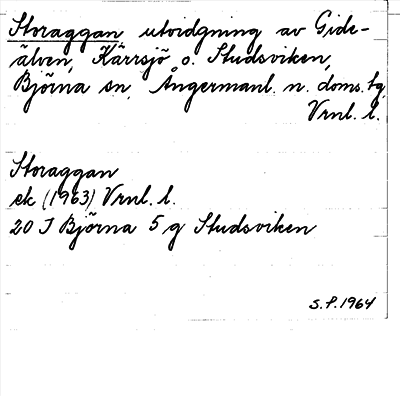 Storaggan utvidgning av Gide-
älven, Kärrsjö o. Studsviken,
Björna sn, Ångermanl. n. doms. tg,
Vrnl. l.
Storaggan
ek (1963) Vrnl. l.
20 J Björna 5 g Studsviken
S.P. 1964